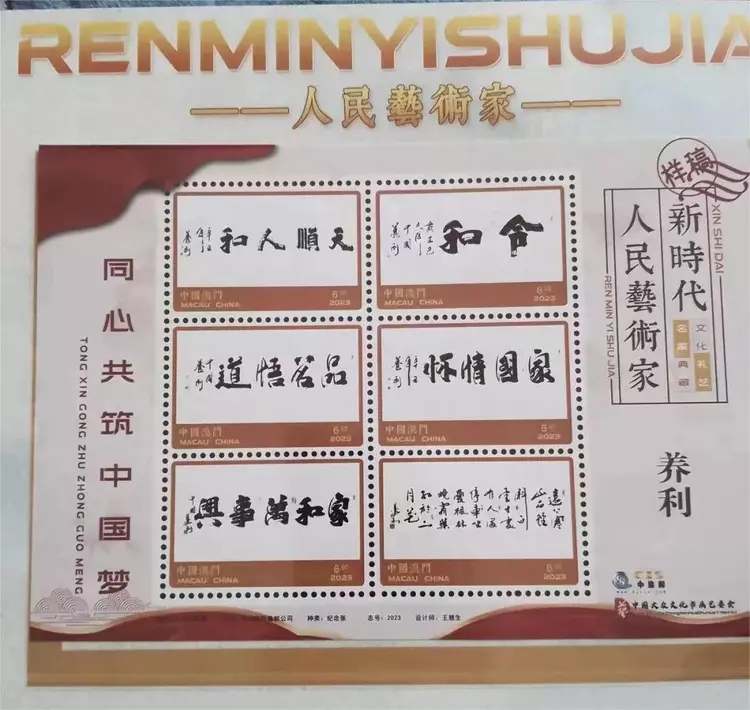 RENMINYISHUJIA
人民藝術家
样稿
新時代
人民藝術家
XIN SHI DAI
REN MIN YI SHU JIA
文化礼艺
名家典藏
养利
同心共筑中国梦
TONG XIN GONG ZHU ZHONG GUO MENG
天順人和
中國澳門
MACAU CHINA
2023
令和
中國澳門
MACAU CHINA
2023
品茗悟道
中國澳門
MACAU CHINA
2023
家國情怀
中國澳門
MACAU CHINA
2023
家和萬事興
中國澳門
MACAU CHINA
2023
遠上寒山石徑斜白雲生處有人家停車坐愛楓林晚霜葉紅於二月花
中國澳門
MACAU CHINA
2023
CIS
中国大众文化书画艺委会
种类:纪念张
志号:2023